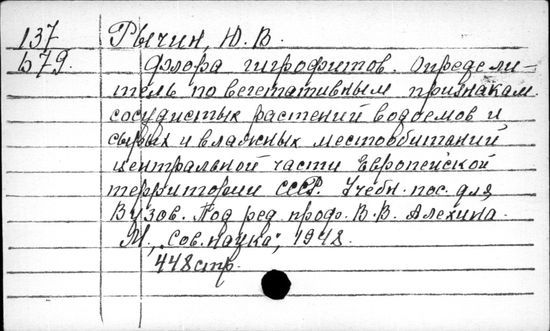 137 Рычин, Ю. В.
579. Флора гигрофитов. Определи-
тель по вегетативным признакам
сосудистых растений водоемов и
сырых и влажных местообитаний
центральной части Европейской
территории СССР. Учебн. пос. для
Вузов. Под ред. проф. В. В. Алехина.
М., "Сов. наука", 1948.
448 стр.